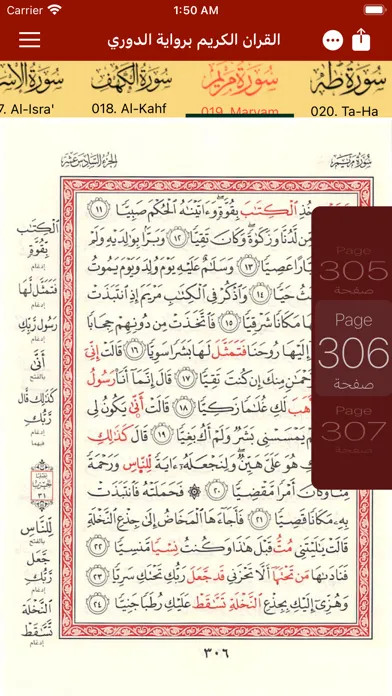 Carrier 1:50 AM
القران الكريم برواية الدوري
سورة الإس سورة الكهف سورة مريم سورة طه
7. Al-Isra' 018. Al-Kahf 019. Maryam 020. Ta-Ha
الجزء السادس عشر سورة مريم
خُذِ الْكِتَٰب بِّقُوَّةٍ وَءَاتَيْنَٰهُ الْحُكْمَ صَبِيًّا ١١
مِّن لَّدُنَّا وَزَكَوٰةً وَكَانَ تَقِيًّا ١٢ وَبَرًّا بِوَٰلِدَيْهِ وَلَمْ
جَبَّارًا عَصِيًّا ١٣ وَسَلَٰمٌ عَلَيْهِ يَوْمَ وُلِدَ وَيَوْمَ يَمُوتُ
حَيًّا ١٤ وَاذْكُرْ فِي الْكِتَٰبِ مَرْيَمَ إِذِ انتَبَذَتْ
مَكَانًا شَرْقِيًّا ١٥ فَاتَّخَذَتْ مِن دُونِهِمْ حِجَابًا
إِلَيْهَا رُوحَنَا فَتَمَثَّل لَّهَا بَشَرًا سَوِيًّا ١٦ قَالَتْ إِنِّيَ
إِن كُنتَ تَقِيًّا ١٧ قَالَ إِنَّمَا أَنَا رَسُول
لَكِ غُلَٰمًا زَكِيًّا ١٨ قَالَتْ أَنَّىٰ يَكُونُ لِي
يَمْسَسْنِي بَشَرٌ وَلَمْ أَكُ بَغِيًّا ١٩ قَالَ كَذَٰلِكِ
هُوَ عَلَيَّ هَيِّنٌ وَلِنَجْعَلَهُ ءَايَةً لِّلنَّاسِ وَرَحْمَةً
مِّنَّا وَكَانَ أَمْرًا مَّقْضِيًّا ٢٠ فَحَمَلَتْهُ فَانتَبَذَتْ
بِهِ مَكَانًا قَصِيًّا ٢١ فَأَجَاءَهَا الْمَخَاضُ إِلَىٰ جِذْعِ النَّخْلَةِ
قَالَتْ يَٰلَيْتَنِي مُتُّ قَبْلَ هَٰذَا وَكُنتُ نِسْيًا مَّنسِيًّا ٢٢
فَنَادَىٰهَا مَن تَحْتَهَا أَلَّا تَحْزَنِي قَد جَعَل رَّبُّكِ تَحْتَكِ سَرِيًّا ٢٣
وَهُزِّي إِلَيْكِ بِجِذْعِ النَّخْلَةِ تَسَّٰقَطْ عَلَيْكِ رُطَبًا جَنِيًّا ٢٤
٣٠٦
الْكِتَٰب
بِّقُوَّةٍ
إدغام
فَتَمَثَّل لَّهَا
إدغام
رَسُول رَّبِّكِ
إدغام
أَنَّىٰ
بالفتح
كَذَٰلِك قَّال
رَّبُّكِ
إدغام
فيهما
٣١
لِّلنَّاسِ
جَعَل
رَّبُّكِ
إدغام
النَّخْلَة
تَّسَّٰقَطْ
إدغام
Page
305
صفحة
Page
306
صفحة
Page
307
صفحة